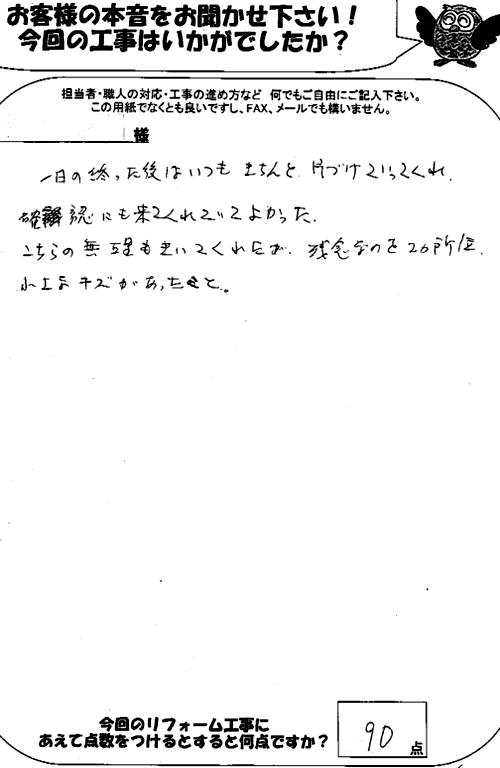 お客様の本音をお聞かせ下さい！
今回の工事はいかがでしたか？
担当者・職人の対応・工事の進め方など 何でもご自由にご記入下さい。
この用紙でなくとも良いですし、FAX、メールでも構いません。
様
一日の終った後はいつもきちんと片づけていってくれ、
確認にも来てくれていてよかった。
こちらの無理もきいてくれたが、残念なのを2カ所位、
小さなキズがあったこと。
今回のリフォーム工事に
あえて点数をつけるとすると何点ですか？
90 点